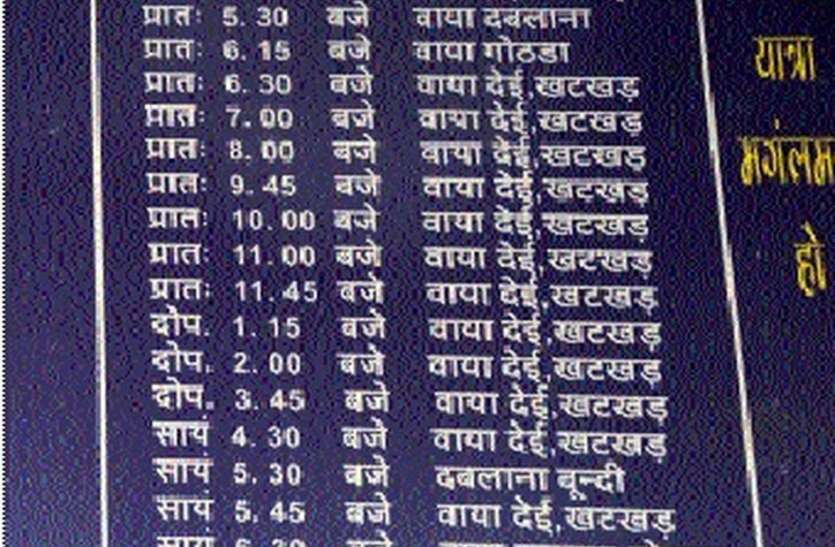 प्रातः 5.30 बजे वाया दबलाना
प्रातः 6.15 बजे वाया गोठडा
प्रातः 6.30 बजे वाया देई,खटखड़
प्रातः 7.00 बजे वाया देई,खटखड़
प्रातः 8.00 बजे वाया देई,खटखड़
प्रातः 9.45 बजे वाया देई,खटखड़
प्रातः 10.00 बजे वाया देई,खटखड़
प्रातः 11.00 बजे वाया देई,खटखड़
प्रातः 11.45 बजे वाया देई,खटखड़
दोप. 1.15 बजे वाया देई,खटखड़
दोप. 2.00 बजे वाया देई,खटखड़
दोप. 3.45 बजे वाया देई,खटखड़
सायं 4.30 बजे वाया देई,खटखड़
सायं 5.30 बजे दबलाना बून्दी
सायं 5.45 बजे वाया देई,खटखड़
यात्रा
मगंलम
हो